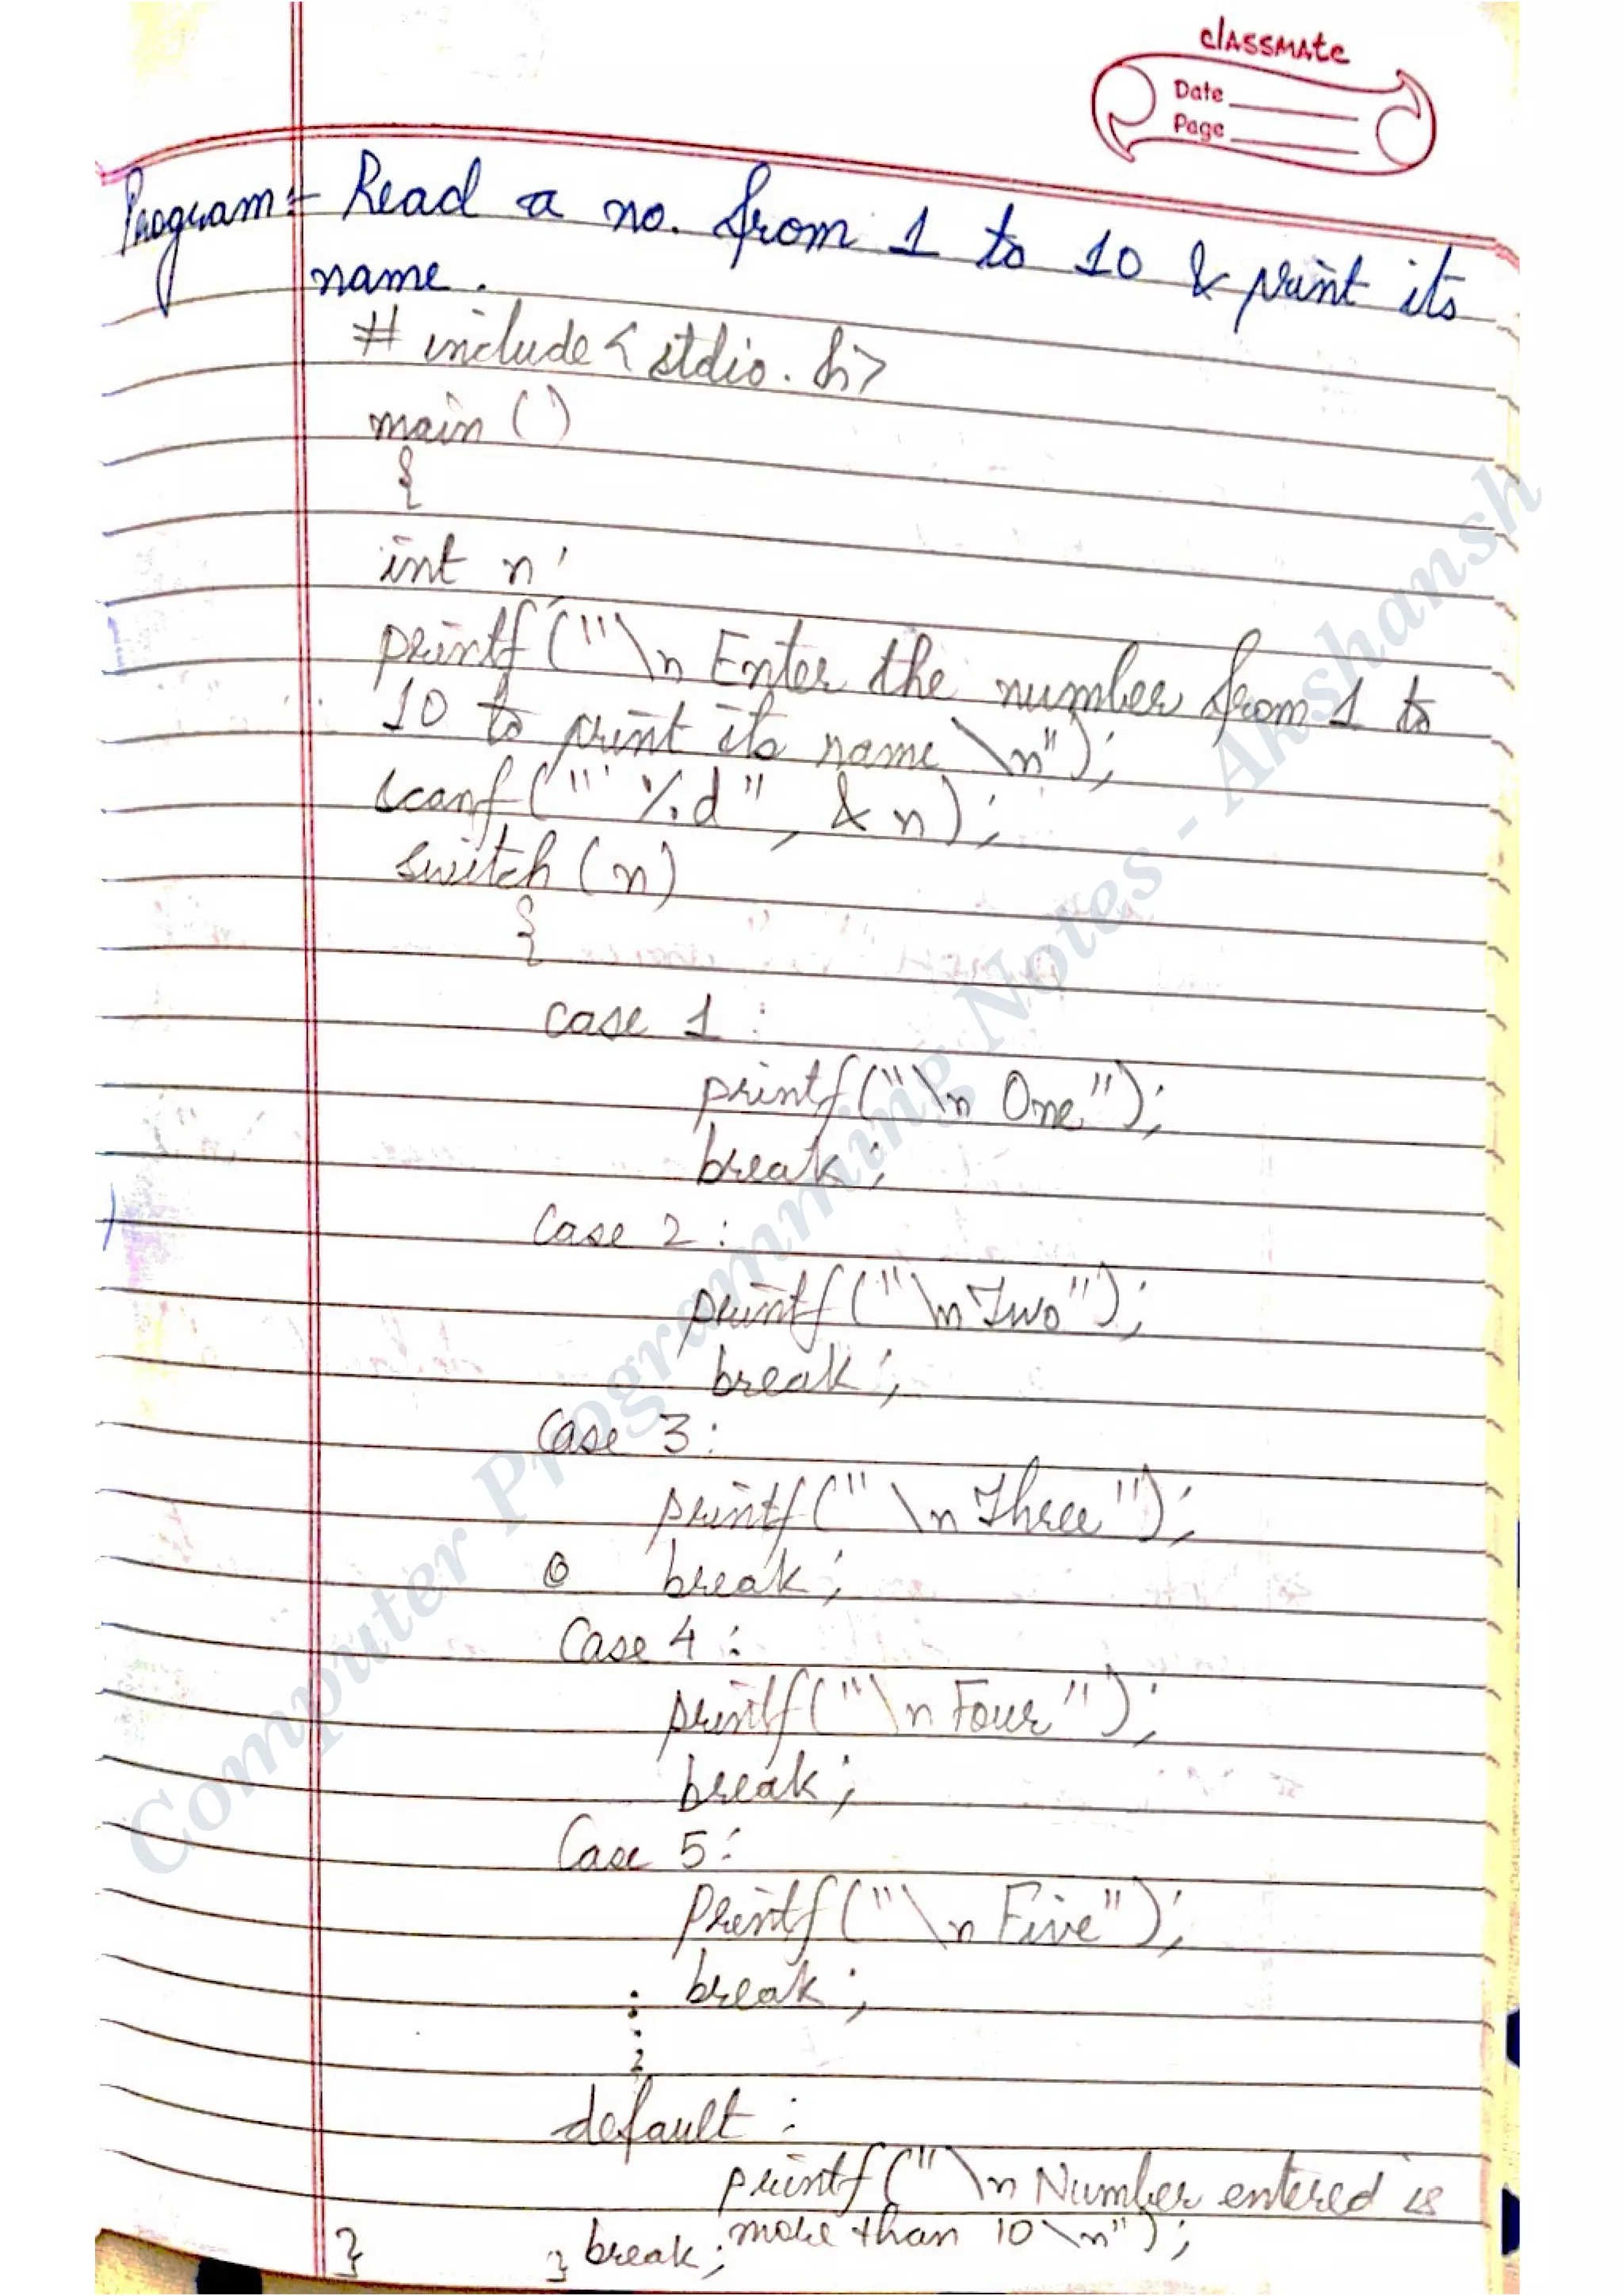 classmate
Date
Page
Program:- Read a no. from 1 to 10 & print its
name.
# include < stdio. h>
main ()
{
int n;
printf ("\n Enter the number from 1 to
10 to print its name \n");
scanf (" %d", & n);
switch (n)
{
case 1 :
printf ("\n One");
break;
Case 2 :
printf ("\n Two");
break;
Case 3 :
printf (" \n Three");
break;
Case 4 :
printf ("\n Four");
break;
Case 5 :
Printf ("\n Five");
break;
default :
printf (" \n Number entered is
more than 10 \n");
} } break;
Computer Programming Notes - Akshansh